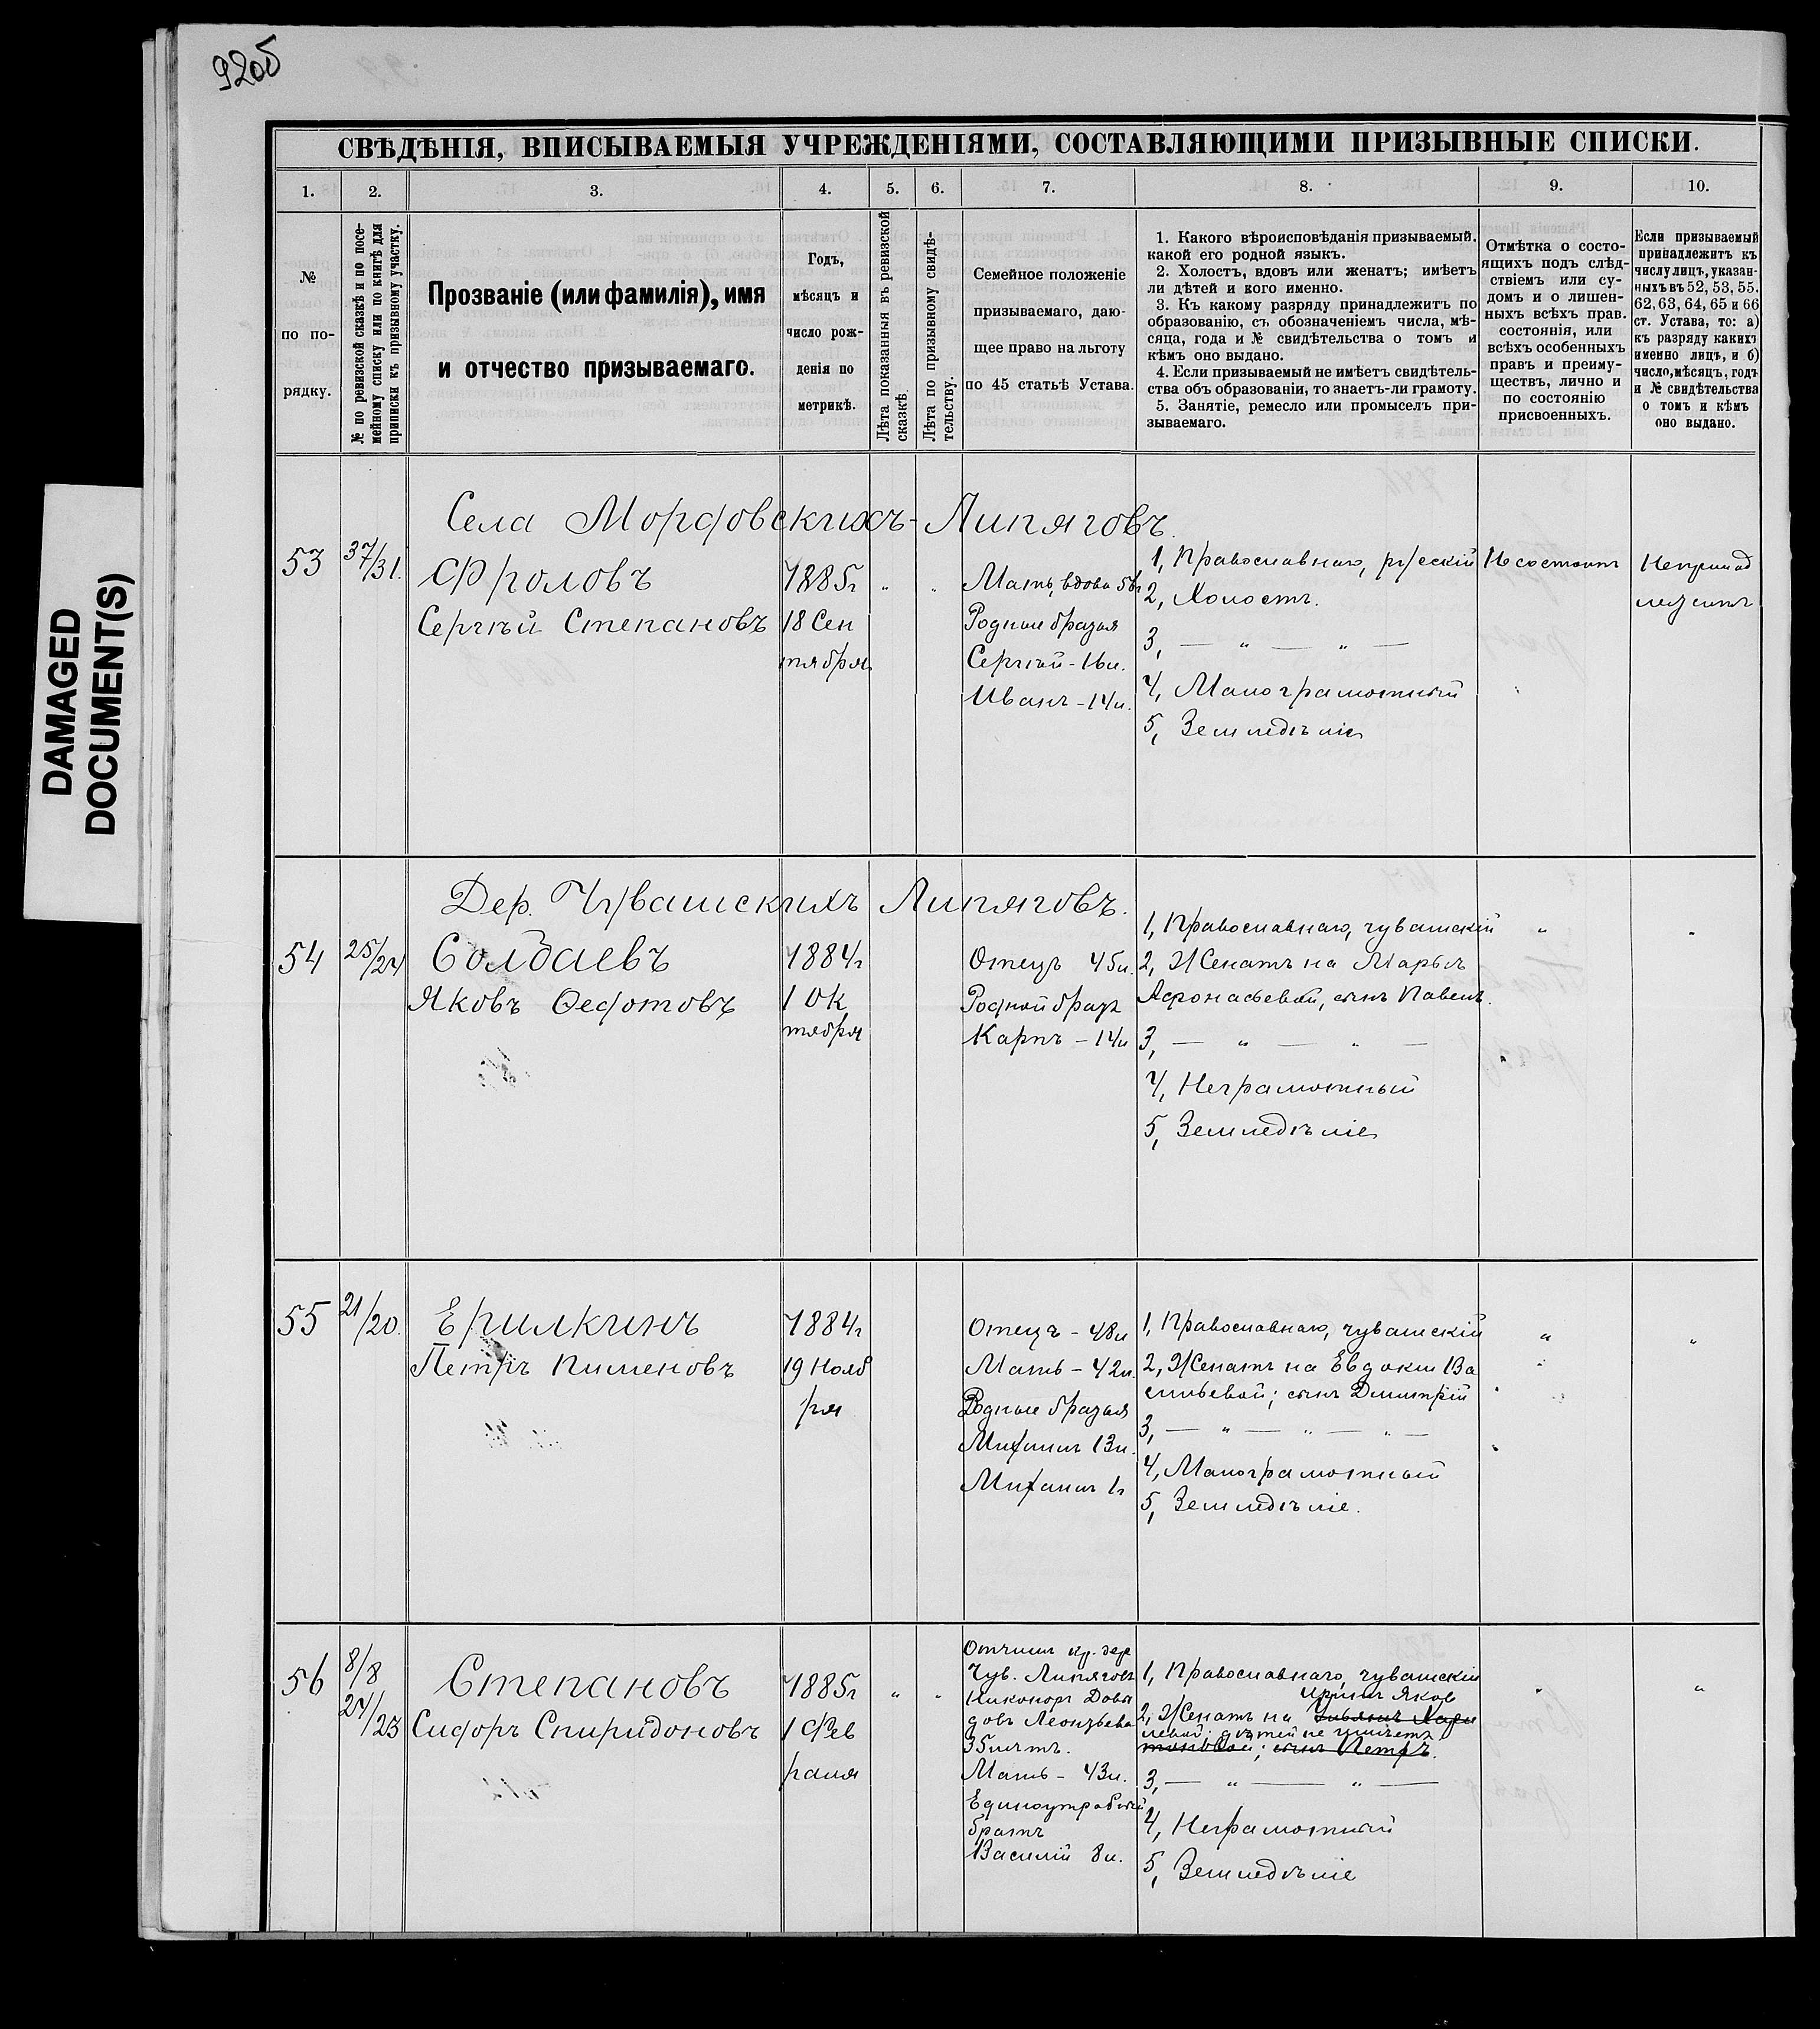 92об
DAMAGED
DOCUMENT(S)
СВѢДѢНІЯ, ВПИСЫВАЕМЫЯ УЧРЕЖДЕНІЯМИ, СОСТАВЛЯЮЩИМИ ПРИЗЫВНЫЕ СПИСКИ.
1. 2. 3. 4. 5. 6. 7. 8. 9. 10.
№
по по-
рядку.
№ по ревизской сказкѣ и по посе-
мейному списку или по книгѣ для
приписки къ призывному участку.
Прозваніе (или фамилія), имя
и отчество призываемаго.
Годъ,
мѣсяцъ и
число рож-
денія по
метрикѣ.
Лѣта показанныя въ ревизской
сказкѣ.
Лѣта по призывному свидѣ-
тельству.
Семейное положеніе
призываемаго, даю-
щее право на льготу
по 45 статьѣ Устава.
1. Какого вѣроисповѣданія призываемый,
какой его родной языкъ.
2. Холостъ, вдовъ или женатъ; имѣетъ
ли дѣтей и кого именно.
3. Къ какому разряду принадлежитъ по
образованію, съ обозначеніемъ числа, мѣ-
сяца, года и № свидѣтельства о томъ и
кѣмъ оно выдано.
4. Если призываемый не имѣетъ свидѣтель-
ства объ образованіи, то знаетъ-ли грамоту.
5. Занятіе, ремесло или промыселъ при-
зываемаго.
Отмѣтка о состо-
ящихъ подъ слѣд-
ствіемъ или су-
домъ и о лишен-
ныхъ всѣхъ прав.
состоянія, или
всѣхъ особенныхъ
правъ и преиму-
ществъ, лично и
по состоянію
присвоенныхъ.
Если призываемый
принадлежитъ къ
числу лицъ, указан-
ныхъ въ 52, 53, 55,
62, 63, 64, 65 и 66
ст. Устава, то: а)
къ разряду какихъ
именно лицъ, и б)
число, мѣсяцъ, годъ
и № свидѣтельства
о томъ и кѣмъ
оно выдано.
Села Мордовскихъ-Липяговъ.
53
37/31.
Фроловъ
Сергѣй Степановъ
1885г
18 Сен
тября
" "
Мать, вдова
Родные братья
Сергѣй - 16л.
Иванъ - 14л.
1, Православнаго, русскій
2, Холостъ.
3, — " — " —
4, Малограмотный
5, Земледѣліе
Не состоитъ
Непринад
лежитъ
Дер. Чувашскихъ Липяговъ.
54
25/24
Солдаевъ
Яковъ Ѳедотовъ
1884г
1 Ок
тября
Отецъ 45л.
Родной братъ
Карпъ - 14л
1, Православнаго, чувашскій
2, Женатъ на Марьѣ
Афонасьевой, сынъ Павелъ.
3, — " — " —
4, Неграмотный
5, Земледѣліе
" "
55
21/20.
Ерилкинъ
Петръ Пименовъ
1884г
19 Нояб
ря
Отецъ - 48л
Мать - 42л.
Родные братья
Михаилъ 13л.
Михаилъ 1г
1, Православнаго, чувашскій
2, Женатъ на Евдокіи Ва
сильевой; сынъ Димитрій
3, — " — " — " —
4, Малограмотный
5, Земледѣліе.
" "
56
8/8
24/23
Степановъ
Сидоръ Спиридоновъ
1885г
1 Фев
раля
" "
Отчимъ кр. дер
Чув. Липяговъ
Никоноръ Давы
довъ Леонтьевъ
35лѣтъ.
Мать - 43л.
Единоутробный
братъ
Василій 8л.
1, Православнаго, чувашскій
Иринѣ Яков
2, Женатъ на Ульянѣ Хари
левой; дѣтей не имѣетъ
тоновой; сынъ Петръ.
3, — " — " —
4, Неграмотный
5, Земледѣліе
" "